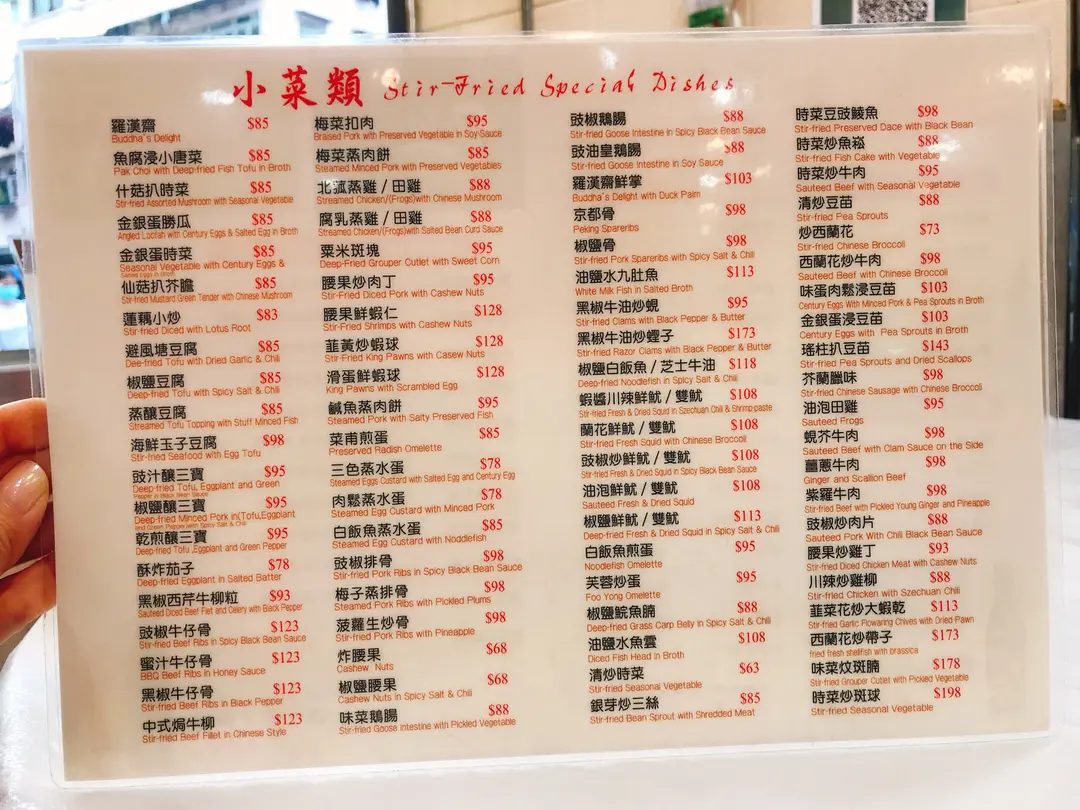 小菜類 Stir-Fried Special Dishes
羅漢齋 $85
Buddha's Delight
魚腐浸小唐菜 $85
Pak Choi with Deep-fried Fish Tofu in Broth
什菇扒時菜 $85
Stir-fried Assorted Mushroom with Seasonal Vegetable
金銀蛋勝瓜 $85
Angled Loofah with Century Eggs & Salted Egg in Broth
金銀蛋時菜 $85
Seasonal Vegetable with Century Eggs &
Salted Eggs in Broth
仙菇扒芥膽 $85
Stir-fried Mustard Green Tender with Chinese Mushroom
蓮藕小炒 $83
Stir-fried Diced with Lotus Root
避風塘豆腐 $85
Dee-fried Tofu with Dried Garlic & Chili
椒鹽豆腐 $85
Deep-fried Tofu with Spicy Salt & Chili
蒸釀豆腐 $85
Streamed Tofu Topping with Stuff Minced Fish
海鮮玉子豆腐 $98
Stir-fried Seafood with Egg Tofu
豉汁釀三寶 $95
Deep-fried Tofu, Eggplant and Green
Pepper in Black Bean Sauce
椒鹽釀三寶 $95
Deep-fried Minced Pork in(Tofu,Eggplant
and Green Pepper)with Spicy Salt & Chili
乾煎釀三寶 $95
Deep-fried Tofu ,Eggplant and Green Pepper
酥炸茄子 $78
Deep-fried Eggplant in Salted Batter
黑椒西芹牛柳粒 $93
Sauteed Diced Beef Filet and Celery with Black Pepper
豉椒牛仔骨 $123
Stir-fried Beef Ribs in Spicy Black Bean Sauce
蜜汁牛仔骨 $123
BBQ Beef Ribs in Honey Sauce
黑椒牛仔骨 $123
Stir-fried Beef Ribs in Black Pepper
中式焗牛柳 $123
Stir-fried Beef Fillet in Chinese Style
梅菜扣肉 $95
Braised Pork with Preserved Vegetable in Soy Sauce
梅菜蒸肉餅 $85
Steamed Minced Pork with Preserved Vegetables
北菰蒸雞 / 田雞 $88
Streamed Chicken/(Frogs)with Chinese Mushroom
腐乳蒸雞 / 田雞 $88
Streamed Chicken/(Frogs)with Salted Bean Curd Sauce
粟米斑塊 $95
Deep-Fried Grouper Cutlet with Sweet Corn
腰果炒肉丁 $95
Stir-Fried Diced Pork with Cashew Nuts
腰果鮮蝦仁 $128
Stir-Fried Shrimps with Cashew Nuts
韮黃炒蝦球 $128
Stir-Fried King Pawns with Casew Nuts
滑蛋鮮蝦球 $128
King Pawns with Scrambled Egg
鹹魚蒸肉餅 $95
Steamed Pork with Salty Preserved Fish
菜甫煎蛋 $85
Preserved Radish Omelette
三色蒸水蛋 $78
Steamed Eggs Custard with Salted Egg and Century Egg
肉鬆蒸水蛋 $78
Steamed Egg Custard with Minced Pork
白飯魚蒸水蛋 $85
Steamed Egg Custard with Noddlefish
豉椒排骨 $98
Stir-fried Pork Ribs in Spicy Black Bean Sauce
梅子蒸排骨 $98
Steamed Pork Ribs with Pickled Plums
菠蘿生炒骨 $98
Stir-fried Pork Ribs with Pineapple
炸腰果 $68
Cashew Nuts
椒鹽腰果 $68
Cashew Nuts in Spicy Salt & Chili
味菜鵝腸 $88
Stir-fried Goose Intestine with Pickled Vegetable
豉椒鵝腸 $88
Stir-fried Goose Intestine in Spicy Black Bean Sauce
豉油皇鵝腸 $88
Stir-fried Goose Intestine in Soy Sauce
羅漢齋鮮掌 $103
Buddha's Delight with Duck Palm
京都骨 $98
Peking Spareribs
椒鹽骨 $98
Stir-fried Pork Spareribs with Spicy Salt & Chili
油鹽水九肚魚 $113
White Milk Fish in Salted Broth
黑椒牛油炒蜆 $95
Stir-fried Clams with Black Pepper & Butter
黑椒牛油炒蟶子 $173
Stir-fried Razor Clams with Black Pepper & Butter
椒鹽白飯魚 / 芝士牛油 $118
Deep-fried Noodlefish in Spicy Salt & Chili
蝦醬川辣鮮魷 / 雙魷 $108
Stir-fried Fresh & Dried Squid in Szechuan Chili & Shrimp-paste
蘭花鮮魷 / 雙魷 $108
Stir-fried Fresh Squid with Chinese Broccoli
豉椒炒鮮魷 / 雙魷 $108
Stir-fried Fresh & Dried Squid in Spicy Black Bean Sauce
油泡鮮魷 / 雙魷 $108
Sauteed Fresh & Dried Squid
椒鹽鮮魷 / 雙魷 $113
Deep-fried Fresh & Dried Squid in Spicy Salt & Chili
白飯魚煎蛋 $95
Noodlefish Omelette
芙蓉炒蛋 $95
Foo Yong Omelette
椒鹽鯇魚腩 $88
Deep-fried Grass Carp Belly in Spicy Salt & Chili
油鹽水魚雲 $108
Diced Fish Head in Broth
清炒時菜 $63
Stir-fried Seasonal Vegetable
銀芽炒三絲 $85
Stir-fried Bean Sprout with Shredded Meat
時菜豆豉鯪魚 $98
Stir-fried Preserved Dace with Black Bean
時菜炒魚崧 $88
Stir-fried Fish Cake with Vegetable
時菜炒牛肉 $95
Sauteed Beef with Seasonal Vegetable
清炒豆苗 $88
Stir-fried Pea Sprouts
炒西蘭花 $73
Stir-fried Chinese Broccoli
西蘭花炒牛肉 $98
Sauteed Beef with Chinese Broccoli
味蛋肉鬆浸豆苗 $103
Century Eggs With Minced Pork & Pea Sprouts in Broth
金銀蛋浸豆苗 $103
Century Eggs with Pea Sprouts in Broth
瑤柱扒豆苗 $143
Stir-fried Pea Sprouts and Dried Scallops
芥蘭臘味 $98
Stir-fried Chinese Sausage with Chinese Broccoli
油泡田雞 $95
Sauteed Frogs
蜆芥牛肉 $98
Sauteed Beef with Clam Sauce on the Side
薑蔥牛肉 $98
Ginger and Scallion Beef
紫羅牛肉 $98
Stir-fried Beef with Pickled Young Ginger and Pineapple
豉椒炒肉片 $88
Sauteed Pork With Chili Black Bean Sauce
腰果炒雞丁 $93
Stir-fried Diced Chicken Meat with Cashew Nuts
川辣炒雞柳 $88
Stir-fried Chicken with Szechuan Chili
韮菜花炒大蝦乾 $113
Stir-fried Garlic Flowaring Chives with Dried Pawn
西蘭花炒帶子 $173
fried fresh shellfish with brassica
味菜炆斑腩 $178
Stir-fried Grouper Cutlet with Pickled Vegetable
時菜炒斑球 $198
Stir-fried Seasonal Vegetable